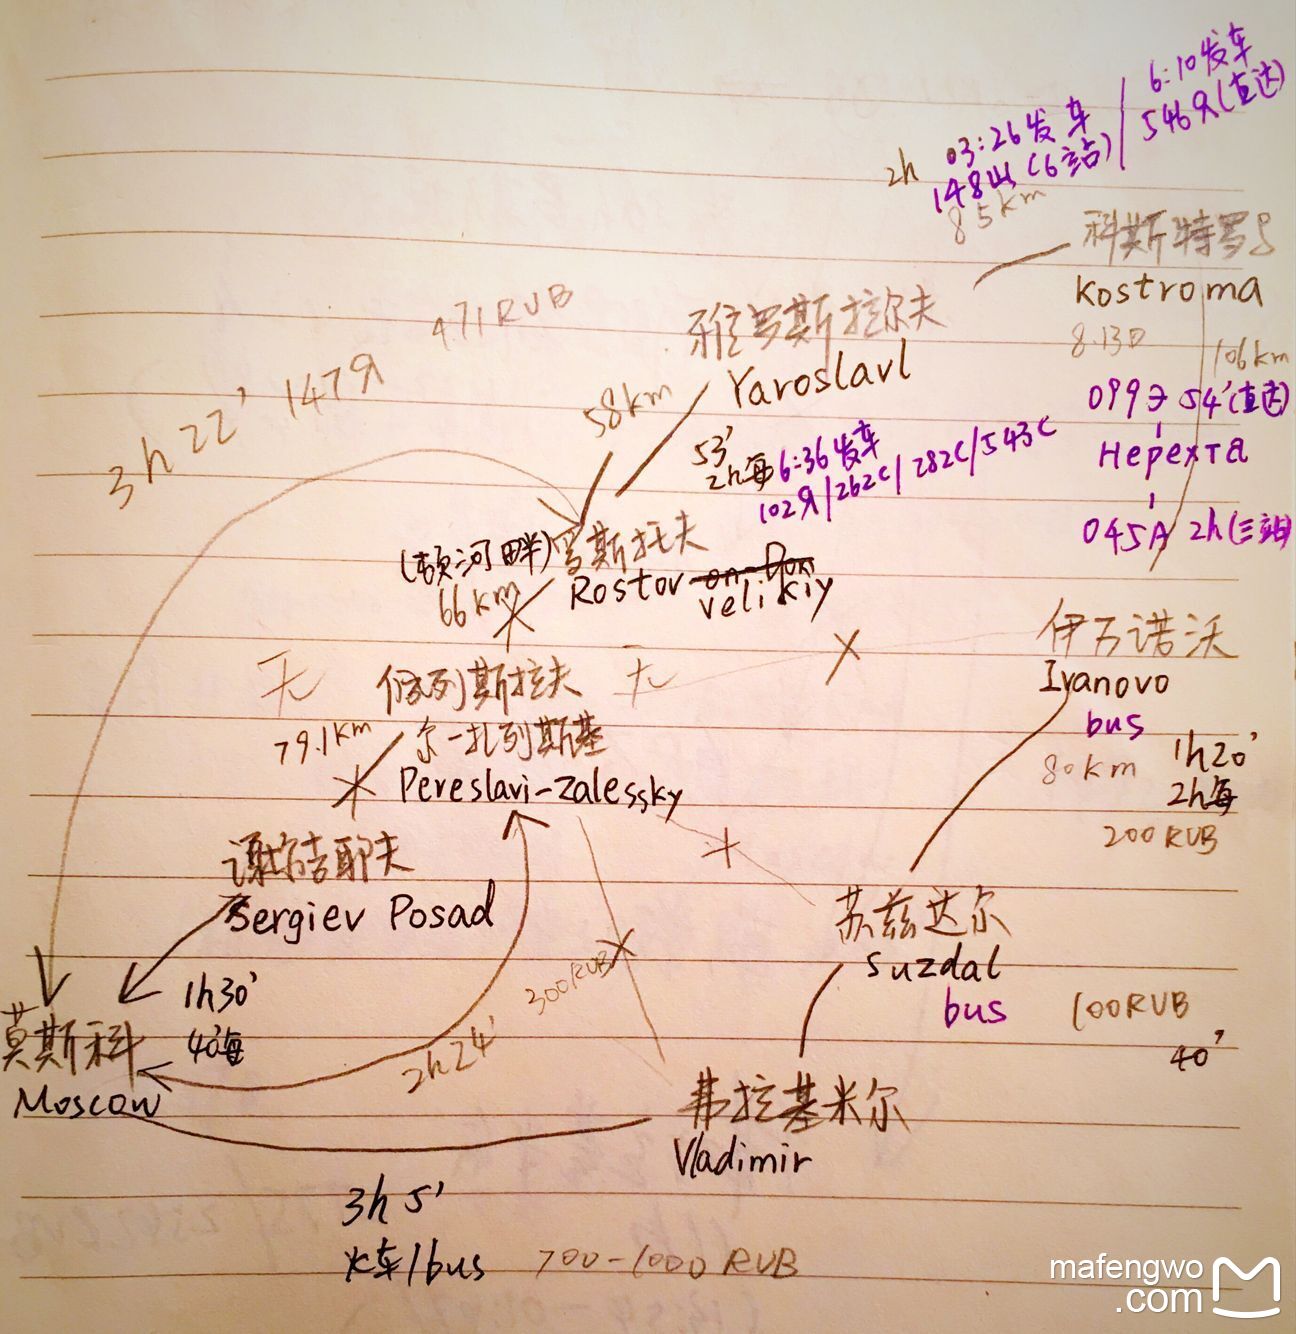 6:10发车
03:26发车
546Я(直达)
2h
148Щ(6站)
85km
科斯特罗
Kostroma
471RUB
雅罗斯拉尔夫
Yaroslavl
8.13日
106km
3h 22' 147Я
58km
099Э 54'(直达)
53'
2h每 6:36发车
102Я/262C/282C/543C
Нерехта
045А 2h(三站)
(顿河畔)罗斯托夫
Rostov on Don
Velikiy
66km
伊万诺沃
Ivanovo
无
无
斯拉夫
尔-扎列斯基
79.1km
Pereslavi-Zalessky
bus
80km
1h20'
2h每
200RUB
谢尔吉耶夫
Sergiev Posad
苏兹达尔
Suzdal
bus
100RUB
40'
300RUB
1h30'
40'每
莫斯科
Moscow
2h24'
弗拉基米尔
Vladimir
3h 5'
火车/bus
700-1000 RUB
mafengwo
.com